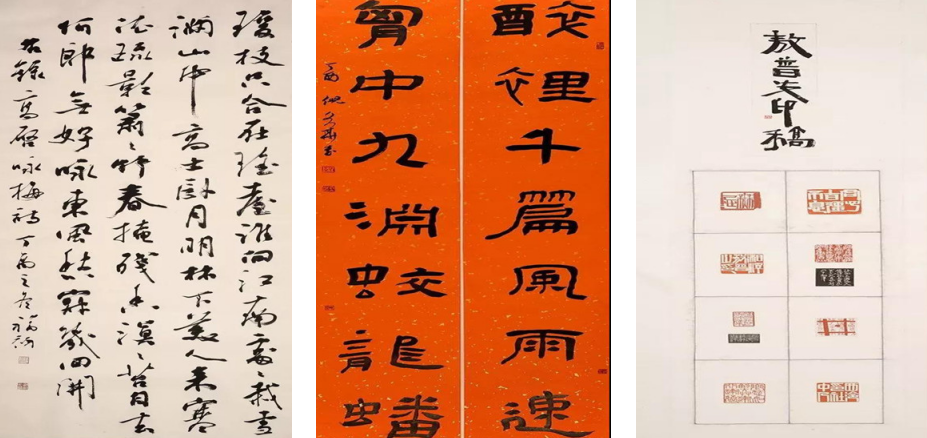 瓊枝只合在瑤臺誰向江南處〻栽雪
滿山中高士臥月明林下美人來寒
依疏影蕭〻竹春掩殘香漠〻苔自去
何郎無好詠東風愁寂幾回開
錄高啟詠梅詩丁酉之冬
醉裡千篇風雨速
胸中九淵蛟龍蟠
丁酉
敖普安印稿